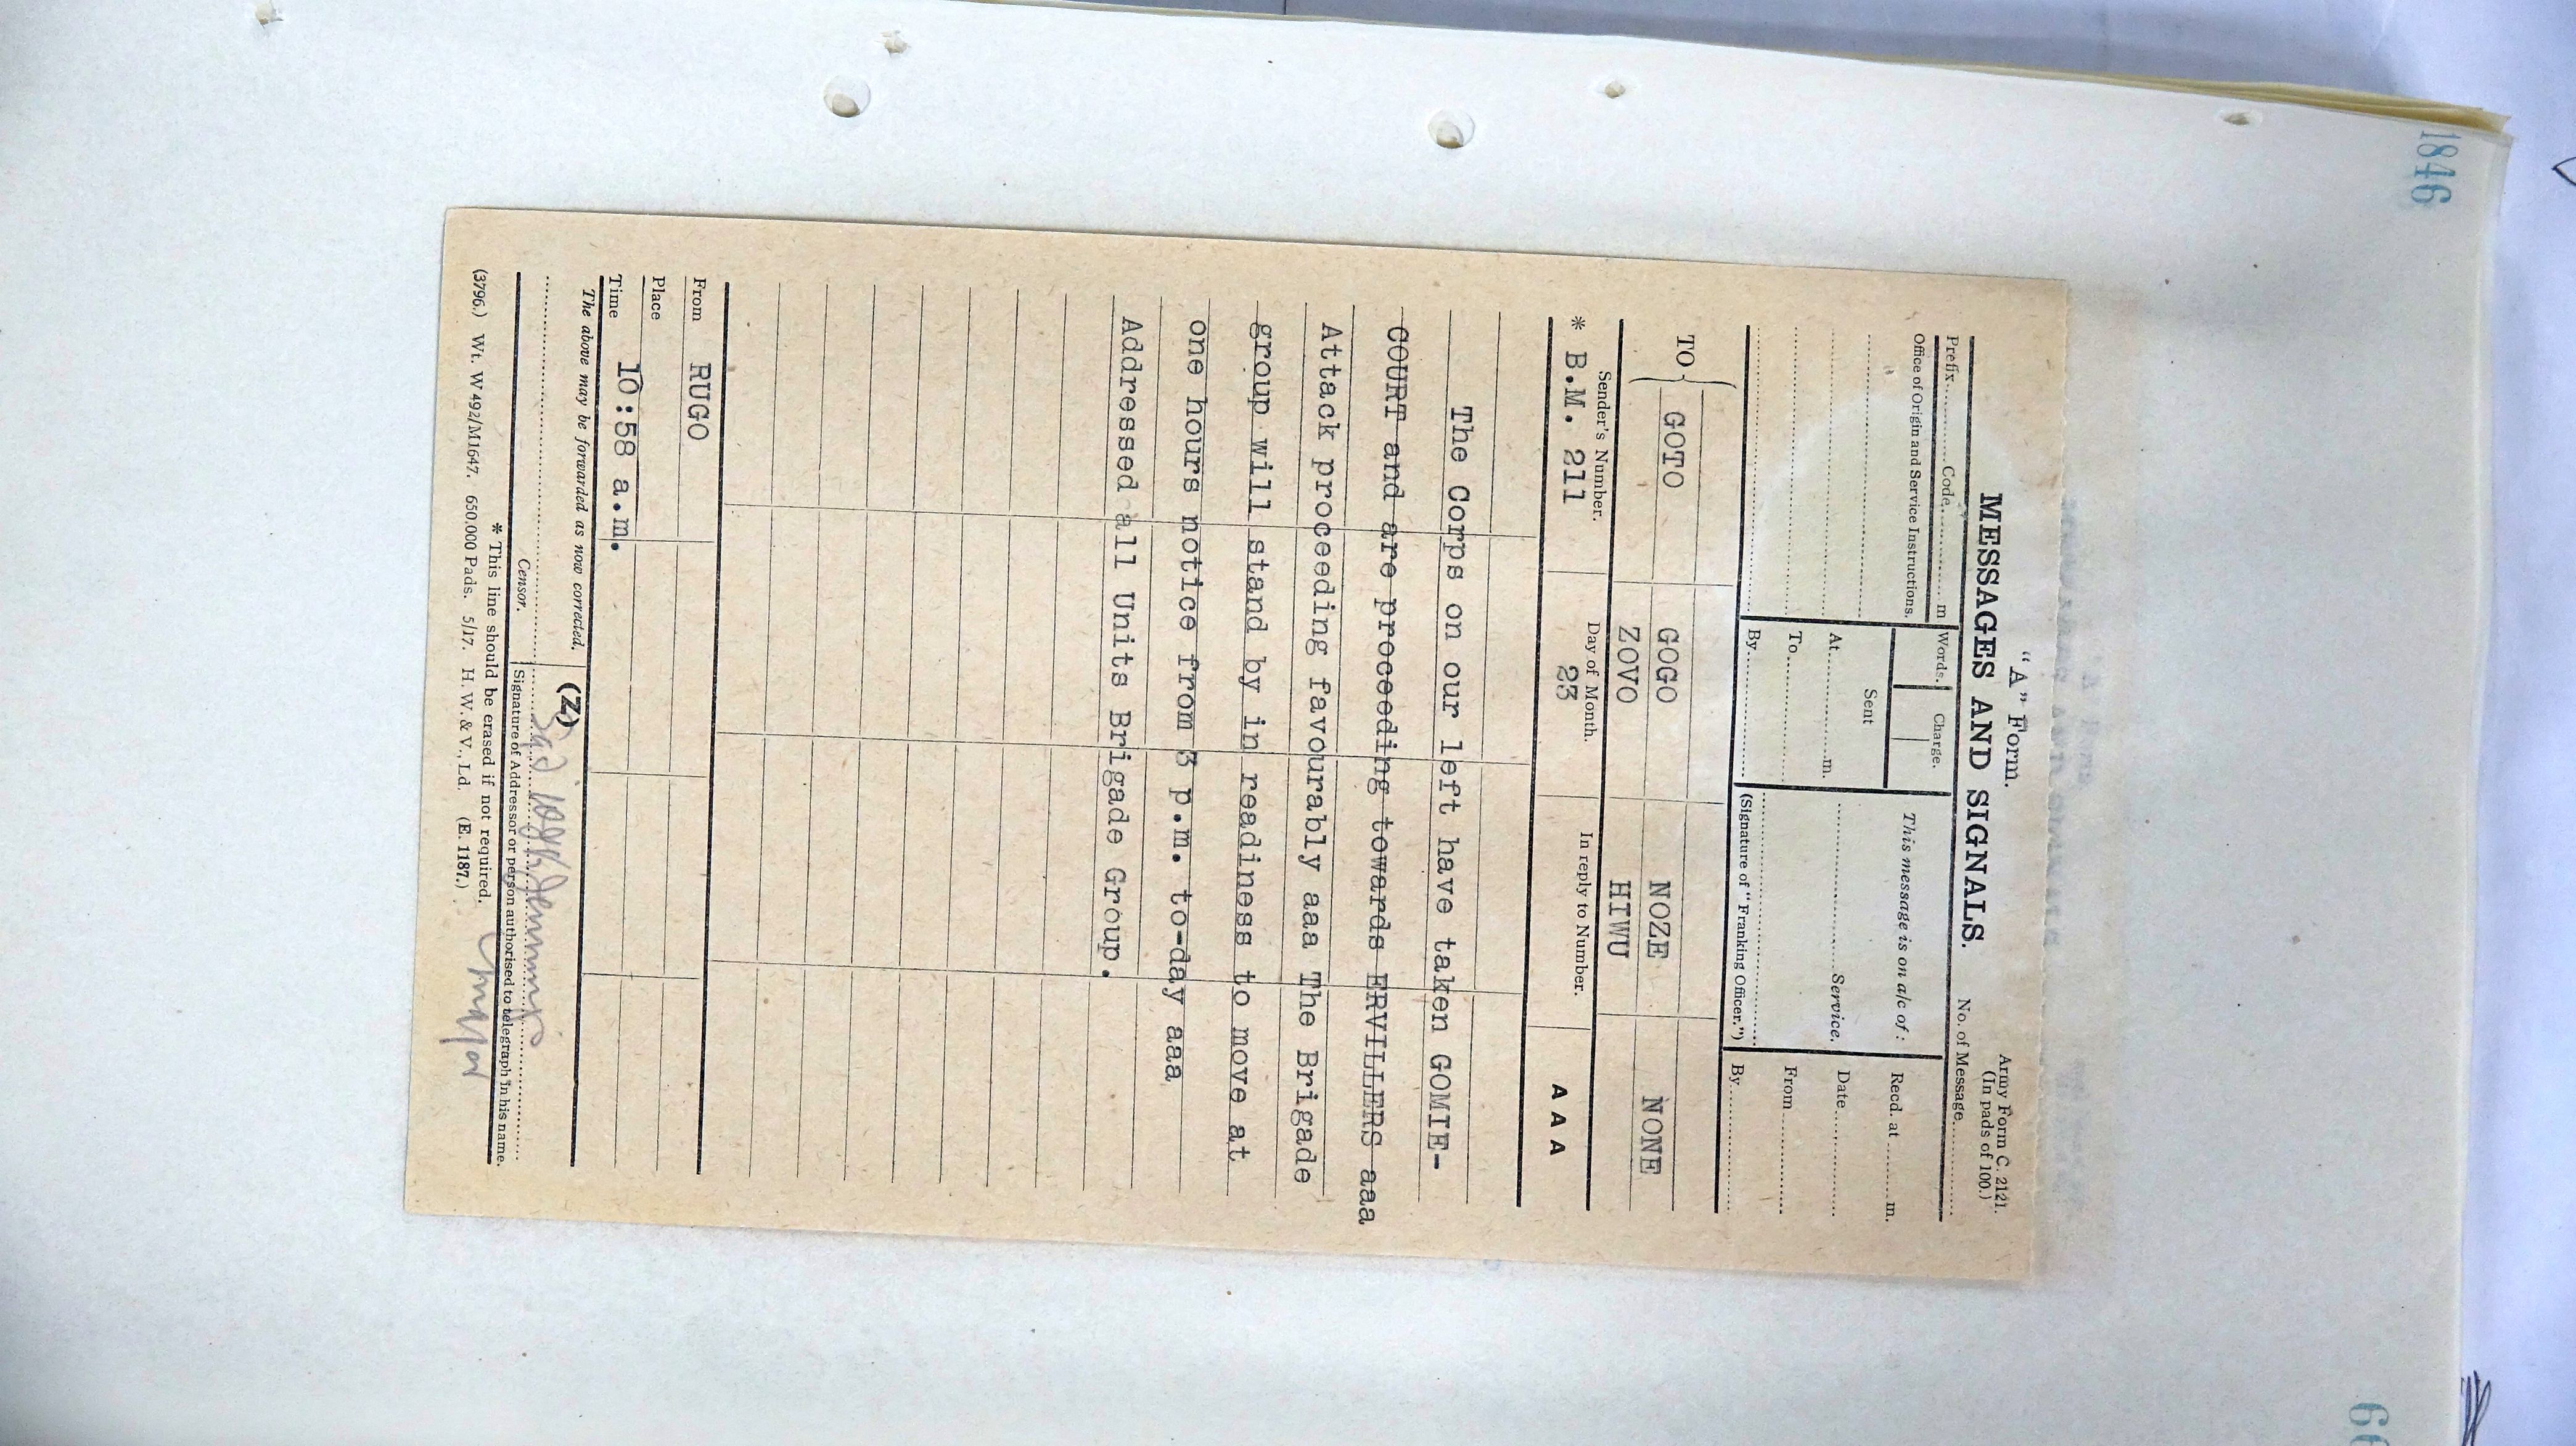 1846
"A" Form.
Army Form C. 2121.
(In pads of 100.)
MESSAGES AND SIGNALS.
No. of Message
Prefix Code m
Words. Charge.
This message is on a/c of:
Recd. at m.
Office of Origin and Service Instructions.
Sent
At m.
Service.
Date
To
From
By
(Signature of "Franking Officer.")
By
TO
GOTO GOGO NOZE NONE
ZOVO HIWU
Sender's Number. Day of Month. In reply to Number.
* B.M. 211 23 A A A
The Corps on our left have taken GOMIE-
COURT and are proceeding towards ERVILLERS aaa
Attack proceeding favourably aaa The Brigade
group will stand by in readiness to move at
one hours notice from 3 p.m. to-day aaa
Addressed all Units Brigade Group.
From RUGO
Place
Time 10:58 a.m.
The above may be forwarded as now corrected. (Z)
Censor.
Signature of Addressor or person authorised to telegraph in his name.
* This line should be erased if not required.
(3796.) Wt. W 492/M1647. 650,000 Pads. 5/17. H. W. & V., Ld. (E. 1187.)